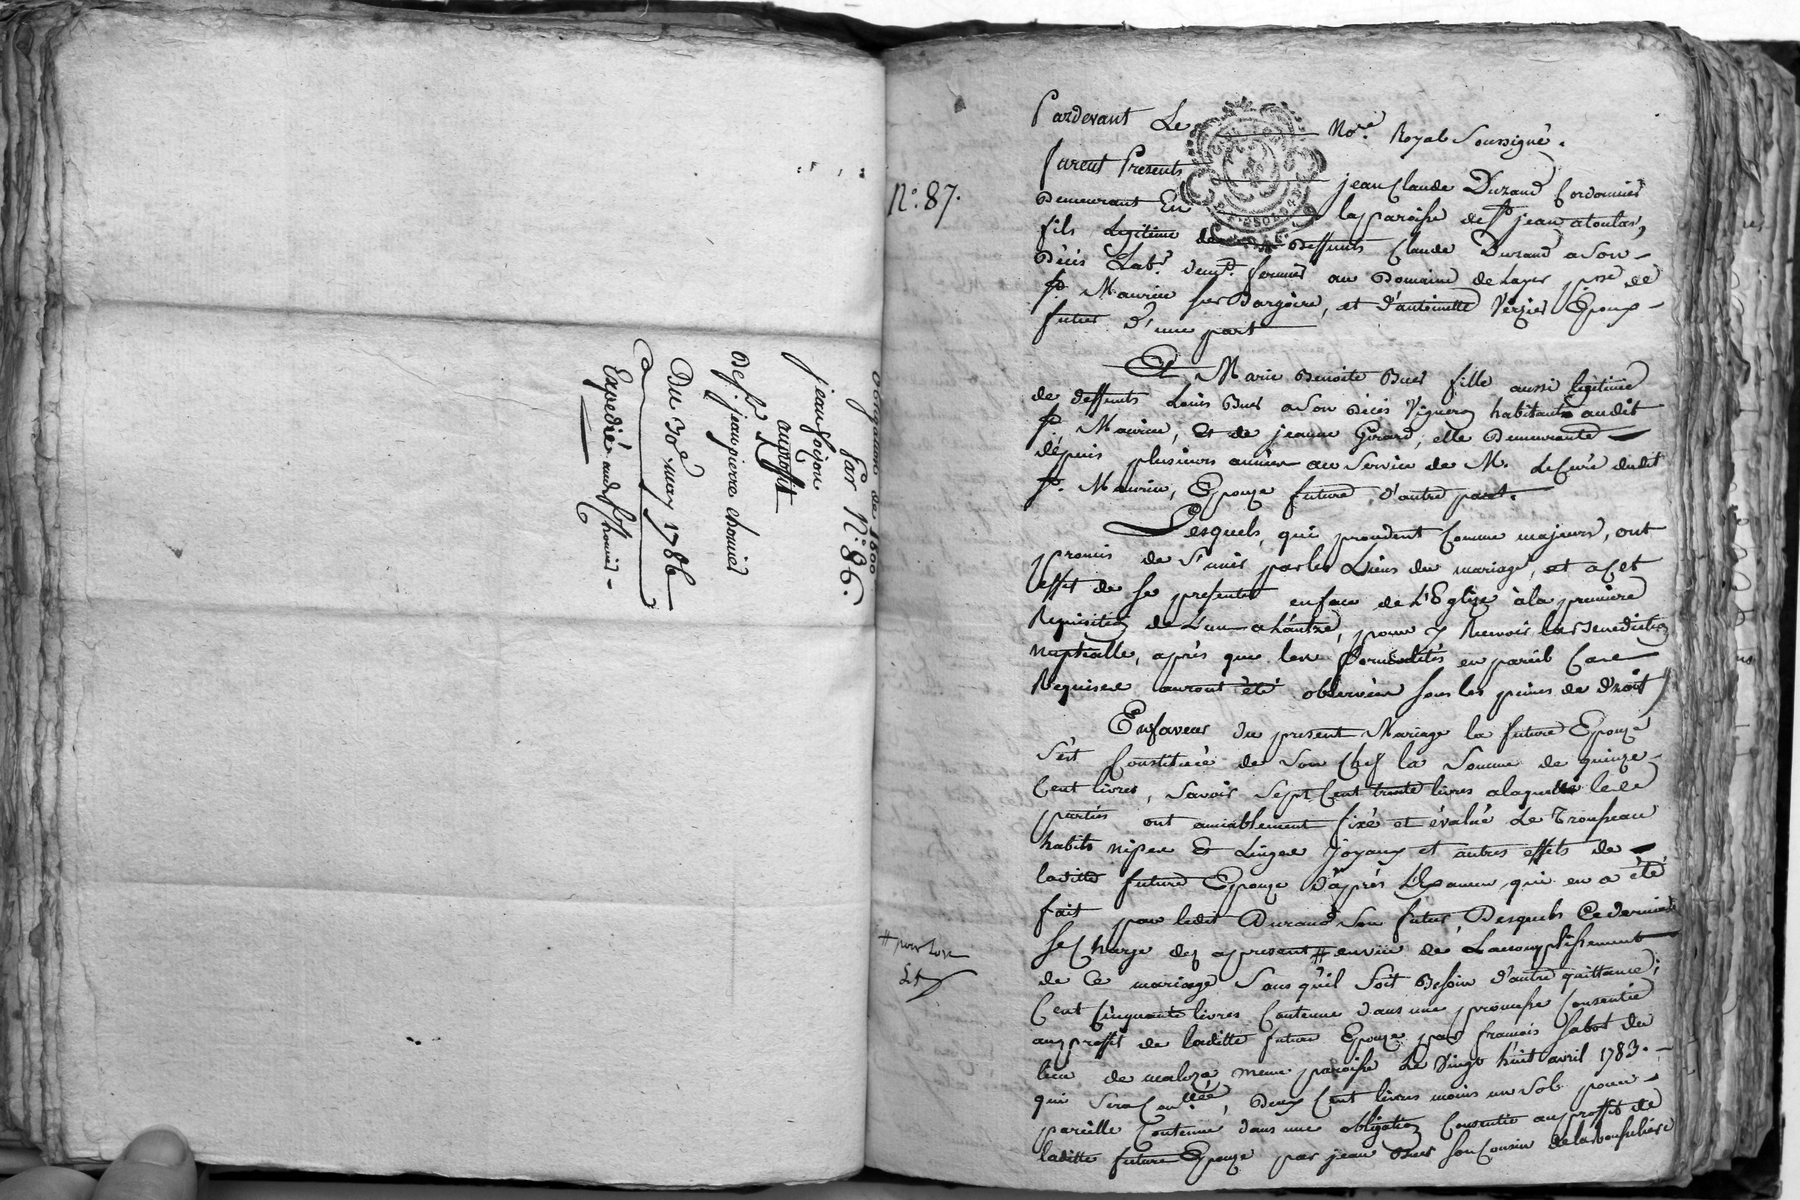 obligation de 1600
par N.º 86.
jean
au proffit
de sr jean pierre chomier
Du 30e may 1786
Expedié audt sr chomier
N.º 87.
Pardevant Le No.re Royal Soussigné.
furent Presents jean Claude Durand Cordonnier
Demeurant En la paroisse de St jean atoulas,
fils Legitime de deffunts Claude Durand a Son
Décès Lab.r demt. fermier au Domaine de Layer psse de
St. Maurice sur Dargoire, et d'antoinette Verzier Epoux
futur d'une part
Et Marie Benoite Buer fille aussi legitime
de deffunts Louis Buer a Son décès Vigneron habitant audit
St. Maurice, et de jeanne Girard, elle Demeurante
dépuis plusieurs années au Service de M. Le Curé dudit
St. Maurice, Epouze future, d'autre part.
Lesquels, qui procedent Comme majeurs, ont
promis de S'unir par les Liens du mariage, et a Cet
effet de se presenter en face de L'Eglize à la premiere
Requisition de L'un a L'autre, pour y Recevoir la Benediction
nuptialle, après que les formalités en pareil Cas
Requises auront été observées sous les peines de droit
En faveur du present Mariage la future Epouze
s'est Constituée de Son Chef la Somme de quinze
Cent livres, Savoir Sept Cent trente livres a laquelle les
parties ont amiablement fixé et évalué Le Trousseau
habits nipes & Linges joyaux et autres effets de
laditte future Epouze d'après L'Examen qui en a été
fait par ledit Durand Son futur, Desquels Ce dernier
se Charge dez apresent # en vüe de L'accomplissement
# pour lors
de Ce mariage Sans qu'il Soit Besoin d'autre quittance;
Cent Cinquante livres Contenue dans une promesse Consentie
au proffit de laditte future Epouze par francois Sabot du
lieu de maloza meme paroisse Le Vingt huit avril 1783.
qui Sera Con.llée, Deux Cent livres moins un Sol pour
pareille Contenue dans une obligation Consentie au proffit de
laditte future Epouze par jean Buer Son Cousin de la